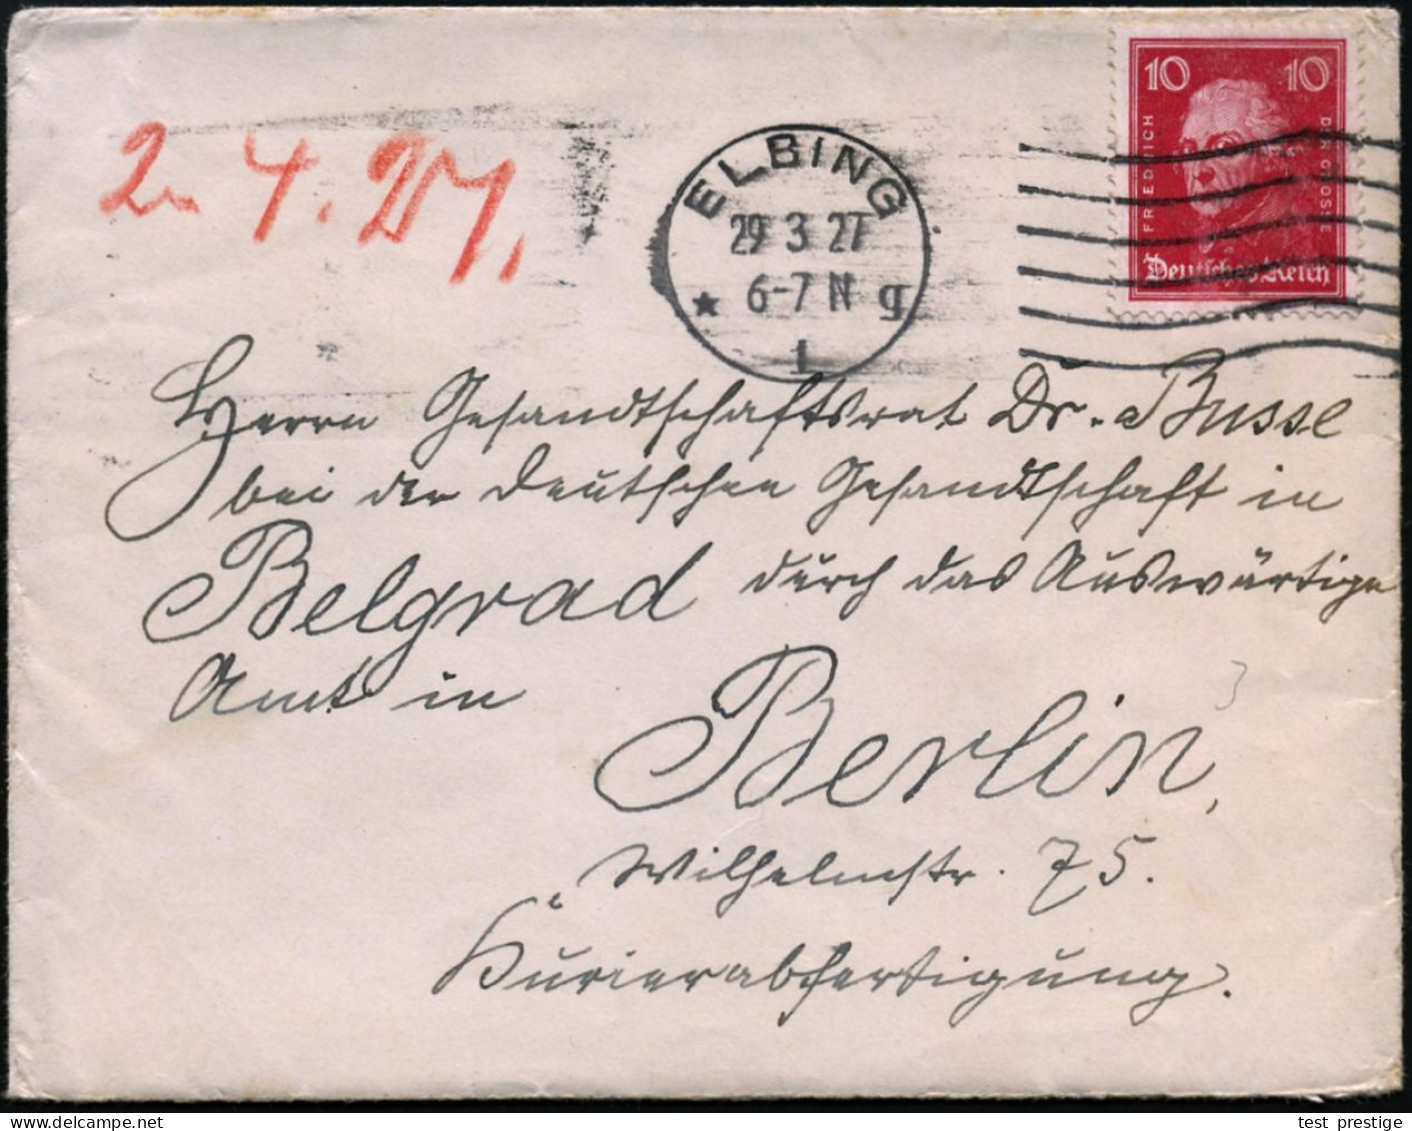 10 10
FRIEDRICH DER GROSSE
Deutsches Reich
ELBING
29 3 27
6-7 N g
1
2. 4. 27.
Herrn Gesandtschaftsrat Dr. Busse
bei der deutschen Gesandtschaft in
Belgrad durch das Auswärtige
Amt in
Berlin,
Wilhelmstr. 75.
Kurierabfertigung.
test prestige